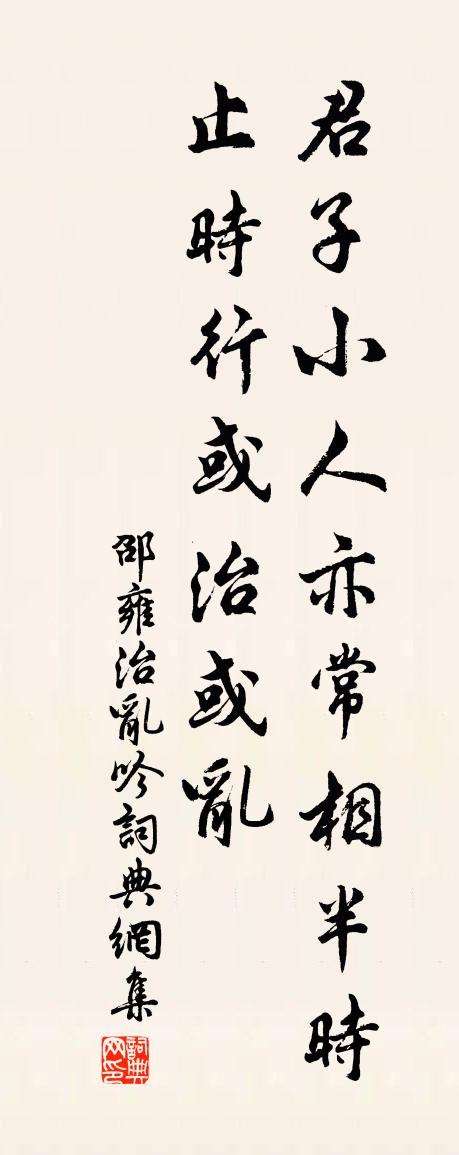 君子小人亦常相半時
止時行或治或亂
邵雍治亂吟詞典網集
詞典網印